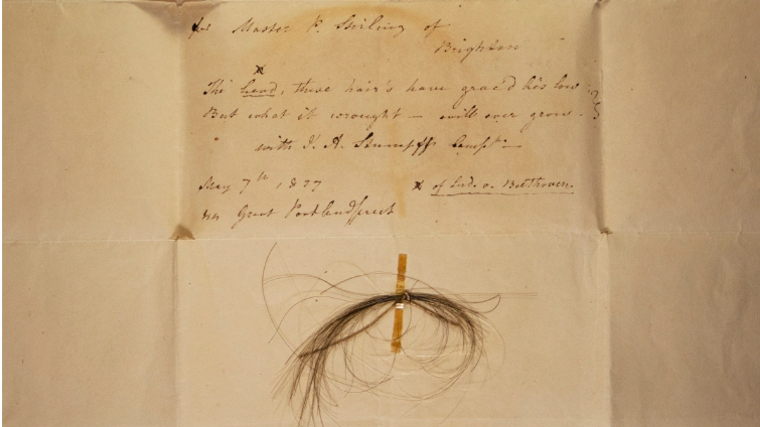 for Master P. Stirling of
Brighton
x
The head, these hair's have grac'd his low
But what it wrought — will ever grow.
with J. A. Stumpff's Compts.—
May 7th, 1827
x of Lud. v. Beethoven.
44 Great Portland street